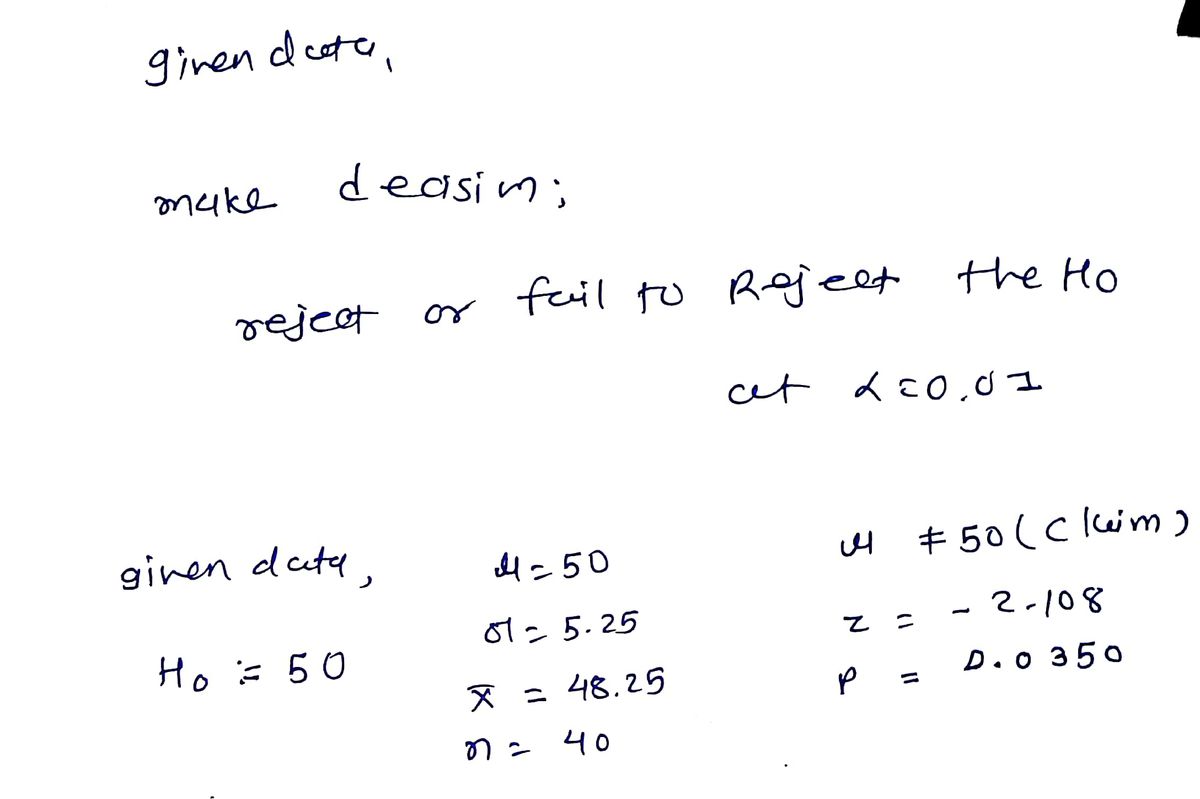 given data,
make decision;
reject or fail to Reject the H0
at α=0.01
given data, μ=50 μ ≠ 50 (Claim)
σ = 5.25 z = -2.108
H0 := 50 x̄ = 48.25 P = 0.0350
n = 40